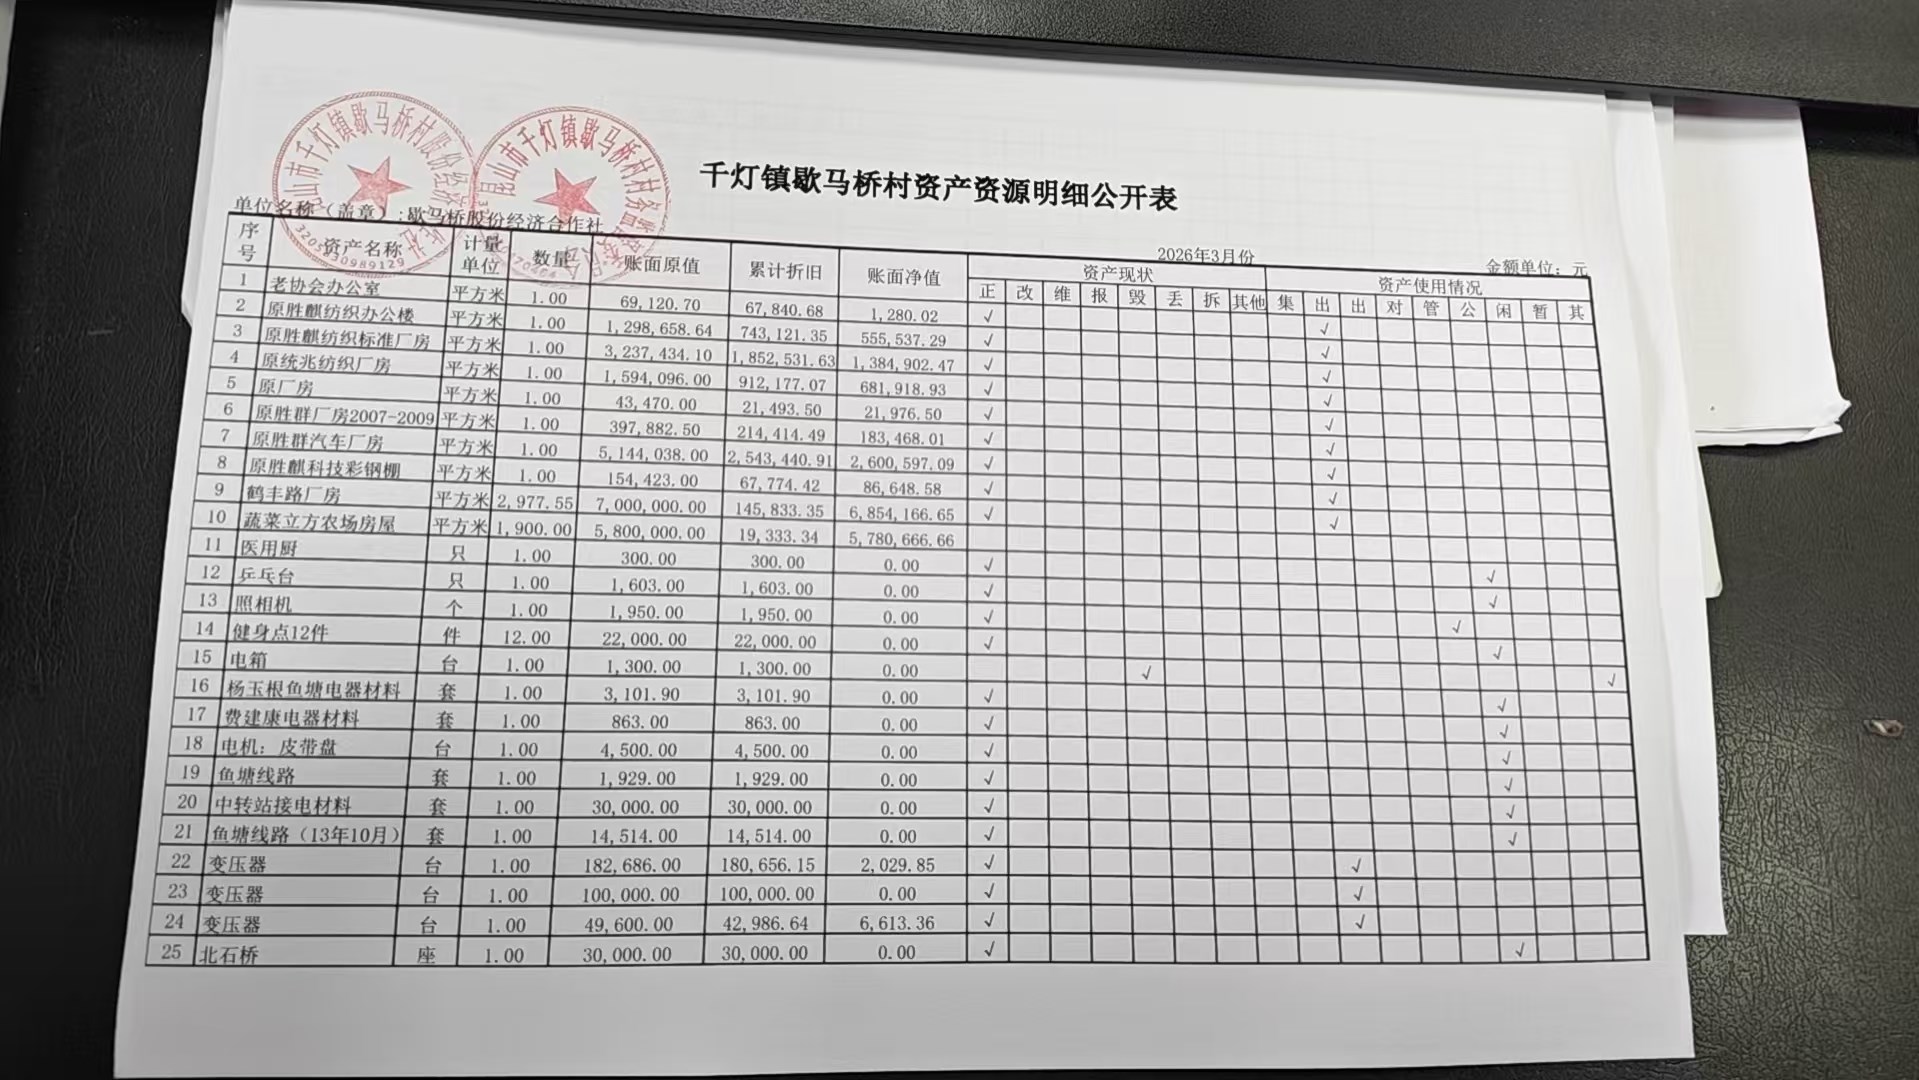 千灯镇歇马桥村资产资源明细公开表
单位名称（盖章）:歇马桥股份经济合作社 2026年3月份 金额单位：元
序号 资产名称 计量单位 数量 账面原值 累计折旧 账面净值 资产现状 资产使用情况
正 改 维 报 毁 丢 拆 其他 集 出 出 对 管 公 闲 暂 其
1 老协会办公室 平方米 1.00 69,120.70 67,840.68 1,280.02 √ √
2 原胜麒纺织办公楼 平方米 1.00 1,298,658.64 743,121.35 555,537.29 √ √
3 原胜麒纺织标准厂房 平方米 1.00 3,237,434.10 1,852,531.63 1,384,902.47 √ √
4 原统兆纺织厂房 平方米 1.00 1,594,096.00 912,177.07 681,918.93 √ √
5 原厂房 平方米 1.00 43,470.00 21,493.50 21,976.50 √ √
6 原胜群厂房2007-2009 平方米 1.00 397,882.50 214,414.49 183,468.01 √ √
7 原胜群汽车厂房 平方米 1.00 5,144,038.00 2,543,440.91 2,600,597.09 √ √
8 原胜麒科技彩钢棚 平方米 1.00 154,423.00 67,774.42 86,648.58 √ √
9 鹤丰路厂房 平方米 2,977.55 7,000,000.00 145,833.35 6,854,166.65 √ √
10 蔬菜立方农场房屋 平方米 1,900.00 5,800,000.00 19,333.34 5,780,666.66
11 医用厨 只 1.00 300.00 300.00 0.00 √ √
12 乒乓台 只 1.00 1,603.00 1,603.00 0.00 √ √
13 照相机 个 1.00 1,950.00 1,950.00 0.00 √ √
14 健身点12件 件 12.00 22,000.00 22,000.00 0.00 √ √
15 电箱 台 1.00 1,300.00 1,300.00 0.00 √ √
16 杨玉根鱼塘电器材料 套 1.00 3,101.90 3,101.90 0.00 √ √
17 费建康电器材料 套 1.00 863.00 863.00 0.00 √ √
18 电机：皮带盘 台 1.00 4,500.00 4,500.00 0.00 √ √
19 鱼塘线路 套 1.00 1,929.00 1,929.00 0.00 √ √
20 中转站接电材料 套 1.00 30,000.00 30,000.00 0.00 √ √
21 鱼塘线路（13年10月） 套 1.00 14,514.00 14,514.00 0.00 √ √
22 变压器 台 1.00 182,686.00 180,656.15 2,029.85 √ √
23 变压器 台 1.00 100,000.00 100,000.00 0.00 √ √
24 变压器 台 1.00 49,600.00 42,986.64 6,613.36 √ √
25 北石桥 座 1.00 30,000.00 30,000.00 0.00 √ √